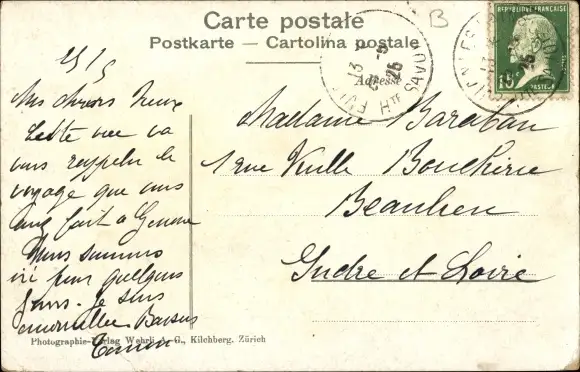 Carte postale
Postkarte — Cartolina postale
B
RÉPUBLIQUE FRANÇAISE
10
PASTEUR
13 25
Hte SAVOIE
Adresse
Mes chers
Cette vue va
vous rappeler le
voyage que vous
avez fait a Geneve
Nous sommes
ici pour quelques
jours. Je suis
Baisers
Madame Baraban
1 rue Boucherie
Beaulieu
Indre et Loire
Photographie-Verlag Wehrli A.-G., Kilchberg. Zürich